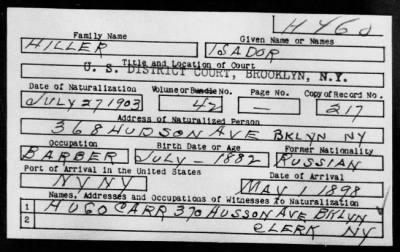 H460
Family Name Given Name or Names
HILLER ISADOR
Title and Location of Court
U. S. DISTRICT COURT, BROOKLYN, N.Y.
Date of Naturalization Volume or Bundle No. Page No. Copy of Record No.
JULY 27 1903 42 — 217
Address of Naturalized Person
368 HUDSON AVE BKLYN NY
Occupation Birth Date or Age Former Nationality
BARBER JULY - 1882 RUSSIAN
Port of Arrival in the United States Date of Arrival
NY NY MAY 1 1898
Names, Addresses and Occupations of Witnesses to Naturalization
1 HUGO CARR 370 HUSSON AVE BKLYN
2 CLERK NY